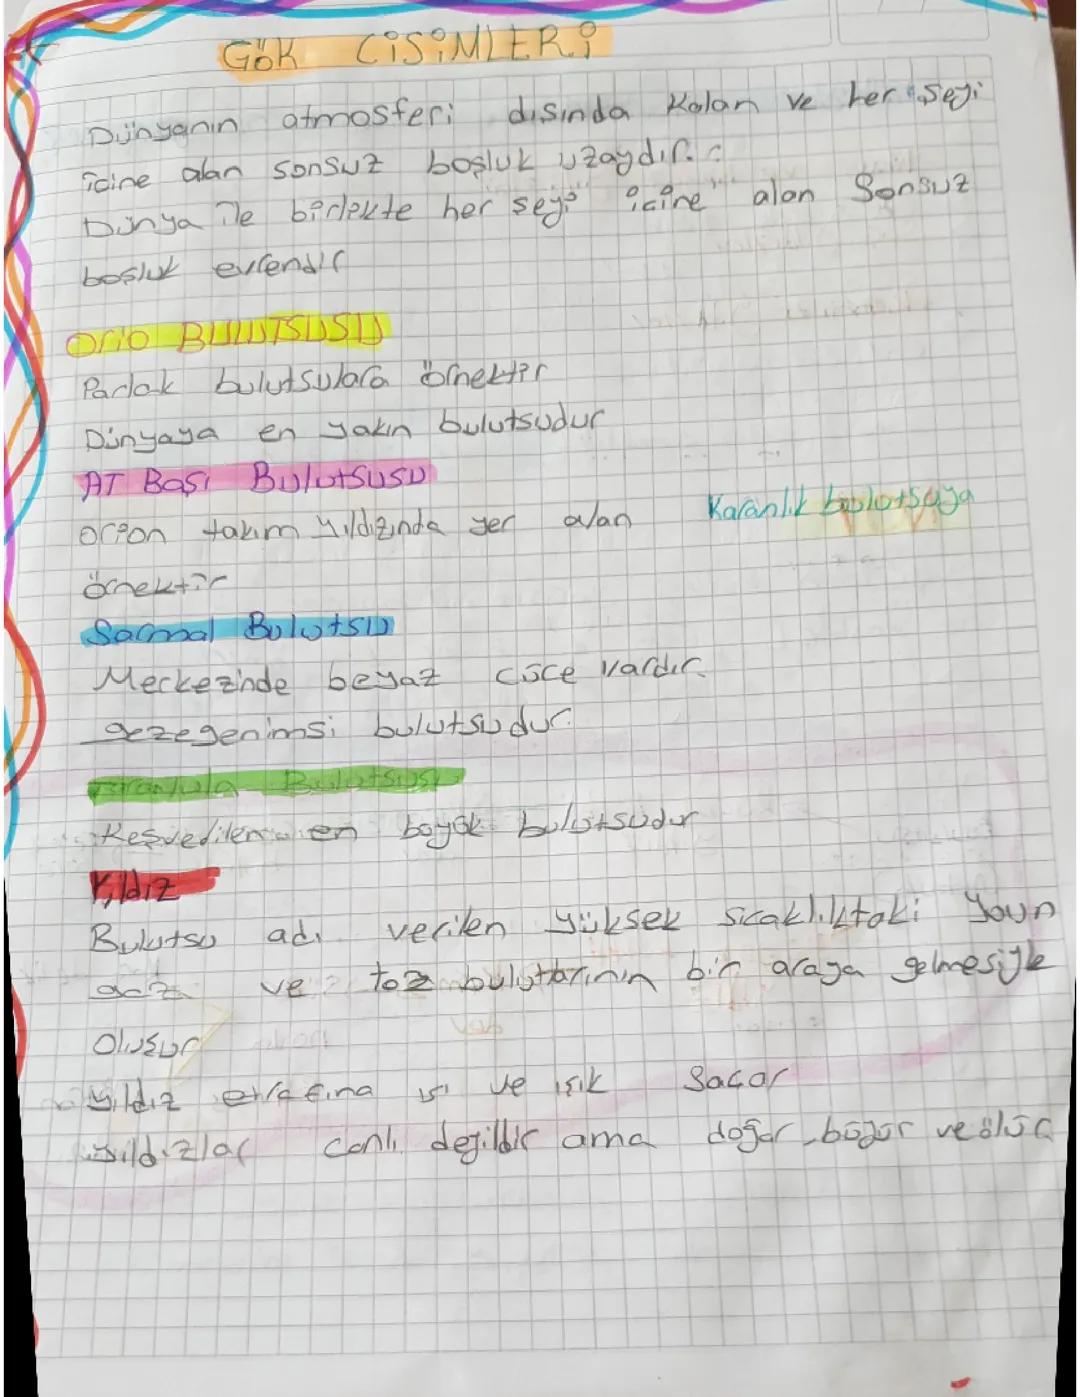 GÖK CİSİMLERİ
Dünyanın atmosferi dısında Kalan ve her seyi
icine alan sonsuz bosluk uzaydır.
Dünya ile birlekte her seyi "icine" alan Sonsuz
bosluk evrendir
Orio BULUTSUSU
Parlak bulutsulara örnektir
Dünyaya en yakın bulutsudur
AT Bası Bulutsusu
orion takım yıldızında yer alan Karanlık bulutsuya
örnektir
Sarmal Bulutsu
Merkezinde beyaz cüce vardır.
gezegenimsi bulutsudur.
Tranlula Bulutsusu
Kesvedilen en böyük bulutsudur
Yıldız
Bulutsu adı verilen yüksek sıcaklıktaki youn
gaz ve toz bulutlarının bir araya gelmesiyle
Oluşur
yıldız etrafına ısı ve ışık Saçar
yıldızlar canlı değildir ama doğar, büyür ve ölür